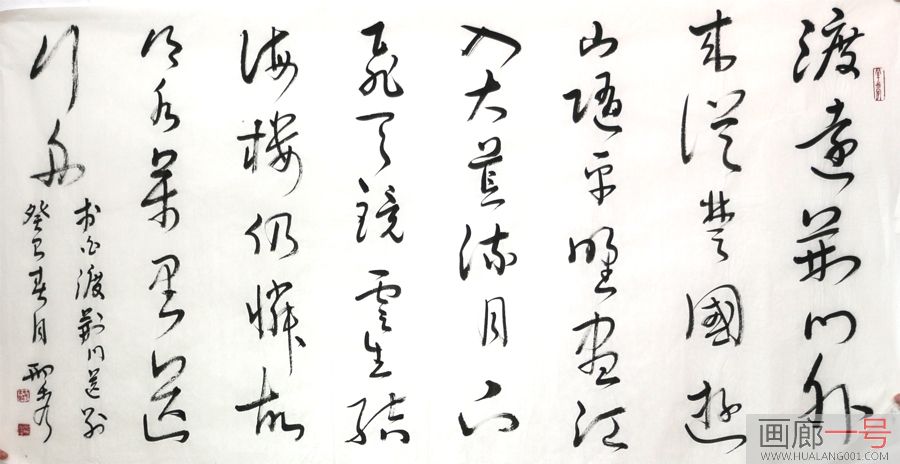 渡遠荊門外
来從楚國遊
山隨平野盡江
入大荒流月下
飛天鏡雲生結
海樓仍憐故
鄉水萬里送
行舟
李白渡荊門送別
癸巳春月
画廊一号
WWW.HUALANG001.COM